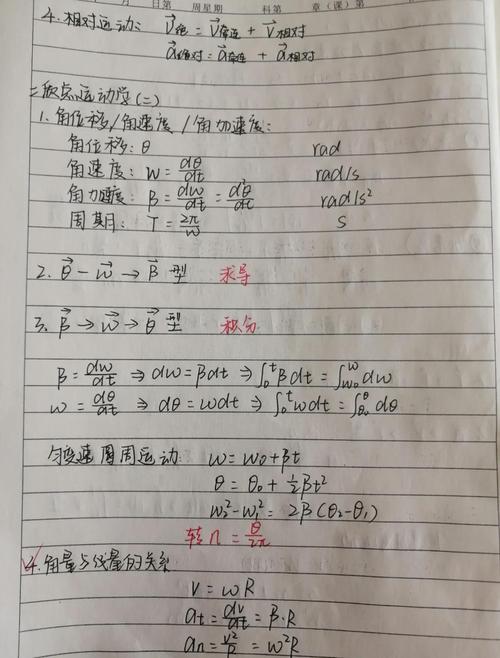 月 日第 周星期 科第 章(课)第
4.相对运动: v⃗绝 = v⃗牵连 + v⃗相对
a⃗绝对 = a⃗牵连 + a⃗相对
二质点运动学(二)
1.角位移/角速度/角加速度:
角位移: θ rad
角速度: w = dθ/dt rad/s
角加速度: β = dw/dt = d²θ/dt rad/s²
周期: T = 2π/w s
2. θ⃗ - w⃗ → β⃗ 型 求导
3. β⃗ → w⃗ → θ⃗ 型 积分
β = dw/dt ⇒ dw = βdt ⇒ ∫₀ᵗ βdt = ∫_{w₀}^{w} dw
w = dθ/dt ⇒ dθ = wdt ⇒ ∫₀ᵗ wdt = ∫_{θ₀}^{θ} dθ
匀变速圆周运动: w = w₀ + βt
θ = θ₀ + ½βt²
w₂² - w₁² = 2β(θ₂ - θ₁)
转n = θ/2π
4.角量与线量的关系
v = wR
at = dv/dt = β·R
an = v²/R = w²R